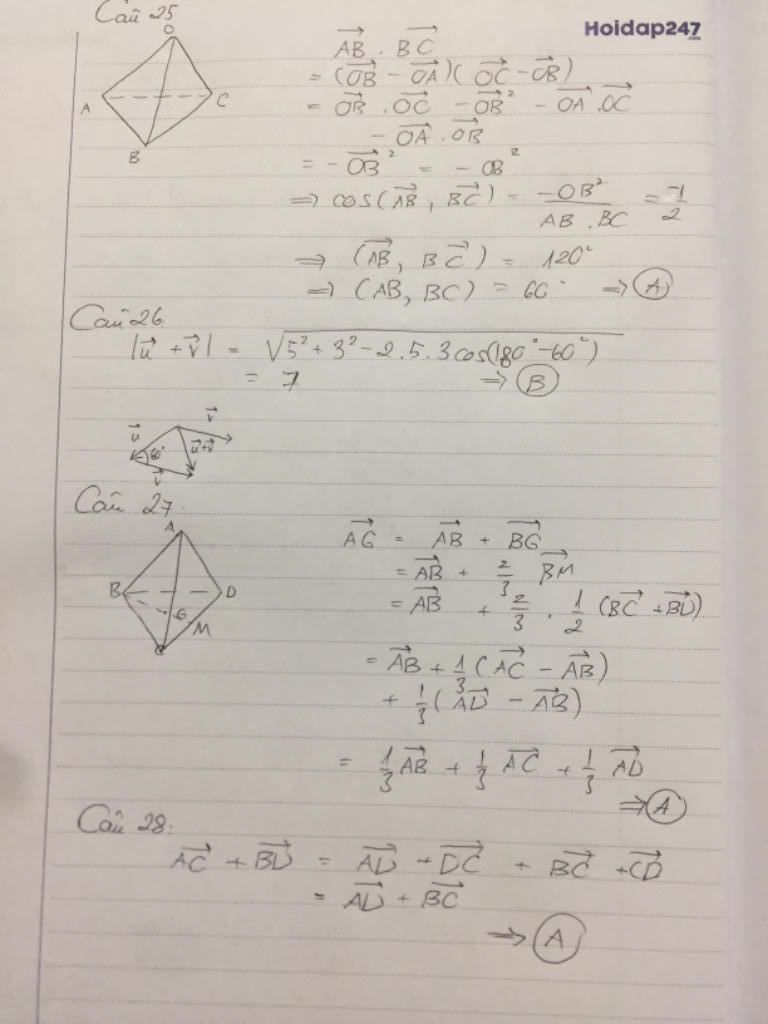 Câu 25
Hoidap247
.com
O
A
B
C
$\overrightarrow{AB} . \overrightarrow{BC}$
$= (\overrightarrow{OB} - \overrightarrow{OA})(\overrightarrow{OC} - \overrightarrow{OB})$
$= \overrightarrow{OB} . \overrightarrow{OC} - \overrightarrow{OB}^2 - \overrightarrow{OA} . \overrightarrow{OC}$
$- \overrightarrow{OA} . \overrightarrow{OB}$
$= - \overrightarrow{OB}^2 = - OB^2$
$\Rightarrow \cos(\overrightarrow{AB}, \overrightarrow{BC}) = \frac{-OB^2}{AB . BC} = \frac{-1}{2}$
$\Rightarrow (\overrightarrow{AB}, \overrightarrow{BC}) = 120°$
$\Rightarrow (AB, BC) = 60° \Rightarrow$ A
Câu 26
$|\vec{u} + \vec{v}| = \sqrt{5^2 + 3^2 - 2.5.3\cos(180° - 60°)}$
$= 7 \Rightarrow$ B
$\vec{v}$
$\vec{u}$
60°
$\vec{u}+\vec{v}$
$\vec{v}$
Câu 27:
A
B
D
G
M
C
$\overrightarrow{AG} = \overrightarrow{AB} + \overrightarrow{BG}$
$= \overrightarrow{AB} + \frac{2}{3} \overrightarrow{BM}$
$= \overrightarrow{AB} + \frac{2}{3} . \frac{1}{2} (\overrightarrow{BC} + \overrightarrow{BD})$
$= \overrightarrow{AB} + \frac{1}{3} (\overrightarrow{AC} - \overrightarrow{AB})$
$+ \frac{1}{3} (\overrightarrow{AD} - \overrightarrow{AB})$
$= \frac{1}{3} \overrightarrow{AB} + \frac{1}{3} \overrightarrow{AC} + \frac{1}{3} \overrightarrow{AD}$
$\Rightarrow$ A
Câu 28:
$\overrightarrow{AC} + \overrightarrow{BD} = \overrightarrow{AD} + \overrightarrow{DC} + \overrightarrow{BC} + \overrightarrow{CD}$
$= \overrightarrow{AD} + \overrightarrow{BC}$
$\Rightarrow$ A